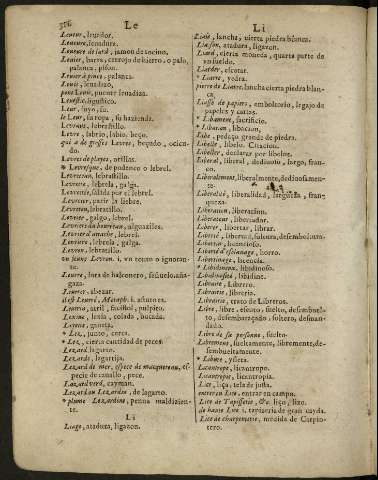 Le
Li
Leveur, levedor.
Leveure, levadura.
Leveure de lard, jamon de tocino.
Levier, barre, cerrojo de hierro, o palo, palanca, pison.
Levier à pince, palanca.
Levis, levadizo,
pont Levis, puente levadiza.
Leur, suyo, su.
le Leur, su ropa, su hazienda.
Levraut, lebrastillo.
Levre, labrio, labio, beço.
qui a de grosses Levres, beçudo, ocicudo.
Levres de playes, orillas.
Levreteau, lebratillo.
Levrette, lebrela, galga.
Levretter, parir la liebre.
Levrier, galgo, lebrel.
Levriers du bourreau, alguaziles.
Levrier d'attache, lebrel.
Levron, lebratillo.
un jeune Levron. i. un tonto o ignorante.
Leurre, lura de halconero, señuelo, añagaza.
Leurrer, abezar.
il est Leurré, Metaph. i. astuto es.
Lexive, lexia, colada, bucada.
* Lez, junto, cerca.
* Lez, cierta cantidad de peces.
Lezard, lagarto.
Lezarde, lagartija.
Lezard de mer, espece de macquereau, especie de cavallo, pece.
Lezard verd, cayman.
* plume Lezardine, penna maldiziente.
Li
Liage, atadura, ligazon.
Liais, lancha, cierta piedra blanca.
Liaison, atadura, ligazon.
Liard, cierta moneda, quarta parte de un sueldo.
Liarder, escotar.
* Liarre, yedra.
pierre de Liarre, lancha cierta piedra blanca.
Liasse de papiers, emboltorio, legajo de papeles y cartas.
* Libament, sacrificio.
* Libation, libacion.
Libe, pedaço grande de piedra.
Libelle, libelo. Citacion.
Libeller, declarar por libelo.
Liberal, liberal, dadivoso, largo, franco.
Liberalement, liberalmente, dadivosamente.
Liberalité, liberalidad, largueza, franqueza.
Liberation, liberacion.
Liberateur, liberador.
Liberer, libertar, librar.
Liberté, libertad, soltura, desemboltura.
Libertin, licencioso.
Libertinage, licencia.
* Libidineux, libidinoso.
* Libidinosité, libidine.
Libraire, Librero.
Librairie, librerio.
Libraires, trato de Libreros.
Libre, libre, esento, suelto, desembuelto, desembaraçado, soltero, desmandado.
Libre de sa personne, suelto.
Librement, sueltamente, libremente, desembueltamente.
Licantrope, licantropo.
Licantropie, licantropia.
Lice, liço, tela de justa.
entrer en Lice, entrar en campo.
Lice de Tapisserie, &c. liço, lizo.
de haute Lice. i. tapiceria de gran cayda.
Lice de charpenterie, torcida de Carpintero.